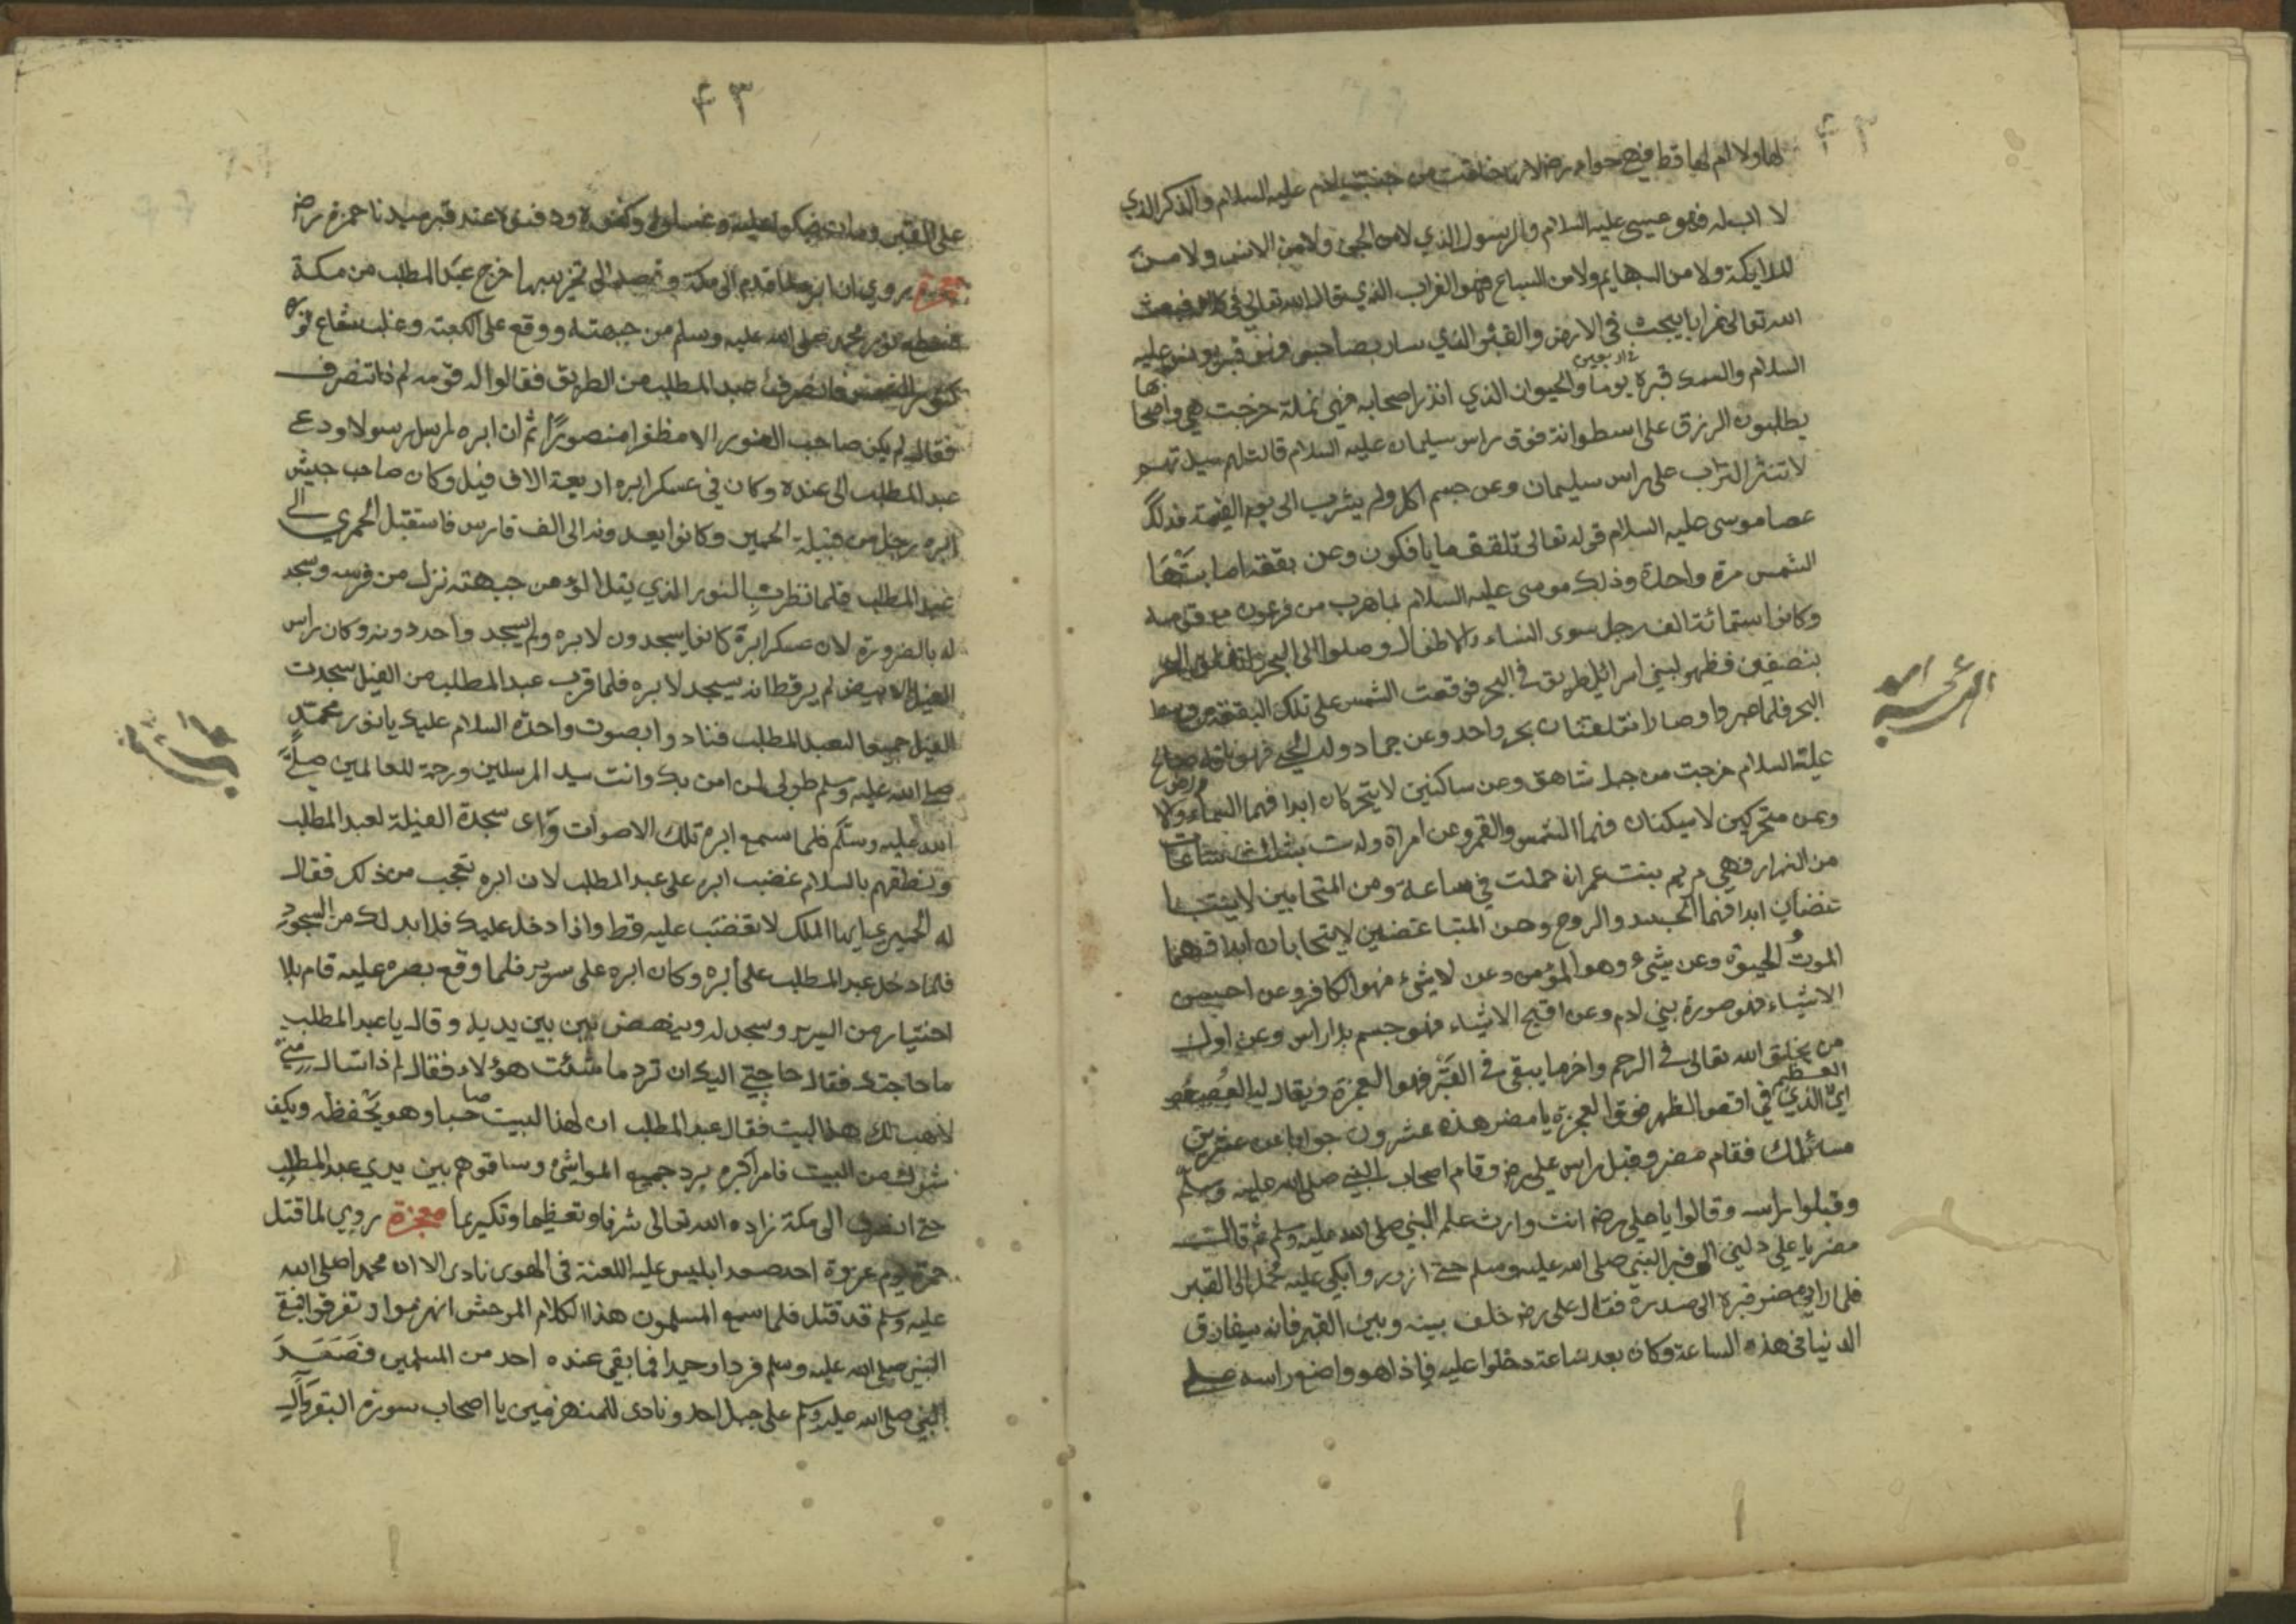 ٤٣
لها ولا ام لها قط فهي حواء رض لانها خلقت من جنب ادم عليه السلام والذكر الذي
لا اب له فهو عيسى عليه السلام والرسول الذي لا من الجن ولا من الانس ولا من
الملايكة ولا من البهايم ولا من السباع فهو الغراب الذي قال الله تعالى في كلامه فبعث
الله تعالى غرابا يبحث في الارض والقبر الذي سار بصاحبه فهو قبر يونس عليه
السلام والسمك قبره يوما والحيوان الذي انذر اصحابه فهي نملة خرجت هي واصحا
اربعين
بها
يطلبون الرزق على اسطوانة فوق راس سليمان عليه السلام قالت لهم
لا تنثر التراب على راس سليمان وعن جسم اكل ولم يشرب الى يوم القيمة فذلك
عصا موسى عليه السلام قوله تعالى تلقف ما يافكون وعن بقعة اصابتها
الشمس مرة واحدة وذلك موسى عليه السلام لما هرب من فرعون مع قومه
وكانوا ستمائة الف رجل سوى النساء والاطفال وصلوا الى البحر فانفلق البحر
بنصفين فظهر لبني اسرائيل طريق في البحر فوقعت الشمس على تلك البقعة من وسط
البحر فلما عبروا وصارا بحر واحد وعن جماد ولد الحي فهو ناقة صالح
عليه السلام خرجت من جبل شاهق وعن ساكنين لا يتحركان ابدا فهما السماء ولا
رض
وعن متحركين لا يسكنان فهما الشمس والقمر وعن امراة ولدت بثلث ساعات
من النهار فهي مريم بنت عمران حملت في ساعة ومن المتحابين لا يتبا
غضان ابدا فهما الجسد والروح وعن المتباغضين لا يتحابان ابدا فهما
الموت والحيوة وعن شيء وهو المؤمن وعن لا شيء فهو الكافر وعن احسن
الاشياء فهو صورة بني ادم وعن اقبح الاشياء فهو جسم بلا راس وعن اول
من يخلق الله تعالى في الرحم واخر ما يبقى في القبر فهو العجزة ويقال لها العصعص
العظم
اي الذي في اقصى الظهر فوق العجزة يا مضر هذه عشرون جوابا عن عشرين
مسائلك فقام مضر وقبل راس علي رض وقام اصحاب النبي صلى الله عليه وسلم
وقبلوا راسه وقالوا يا علي رض انت وارث علم النبي صلى الله عليه وسلم ثم قالت
مضر يا علي دلني الى قبر النبي صلى الله عليه وسلم حتى ازور وابكي عليه الى القبر
فلما راى مضر قبره الى صدره فقال علي رض خلف بينه وبين القبر فانه سيفارق
الدنيا في هذه الساعة وكان بعد ساعة دخلوا عليه فاذا هو واضع راسه على
٤٣
على القبر ومات فبكوا عليه وغسلوه وكفنوه ودفنوه عند قبر سيدنا حمزة رض
معجزة روي ان ابره لما قدم الى مكة وقصد الى تخريبها خرج عبد المطلب من مكة
نور محمد صلى الله عليه وسلم من جبهته ووقع على الكعبة وغلب شعاع نوره
الشمس فانصرف عبد المطلب من الطريق فقالوا له قومه لم ذا تنصرف
فقال لم يكن صاحب النور الا مظفرا منصورا ثم ان ابره ارسل رسولا ودعى
عبد المطلب الى عنده وكان في عسكر ابره اربعة الاف فيل وكان صاحب جيش
ابره رجل من قبيلة الحمير وكانوا يعدونه الى الف فارس فاستقبل الحمري الى
عبد المطلب فلما نظرت بالنور الذي يتلالؤ من جبهته نزل من فرسه وسجد
له بالضرورة لان عسكر ابرة كانوا يسجدون لابره ولم يسجد واحد دونه وكان راس
الفيل الابيض لم ير قط انه يسجد لابره فلما قرب عبد المطلب من الفيل سجدت
الفيل جميعا لعبد المطلب فنادوا بصوت واحدة السلام عليك يا نور محمد
صلى الله عليه وسلم طوبى لمن امن بك وانت سيد المرسلين ورحمة للعالمين صلى
الله عليه وسلم فلما سمع ابره تلك الاصوات وراى سجدة الفيلة لعبد المطلب
ونطقهم بالسلام غضب ابره على عبد المطلب لان ابره تعجب من ذلك فقال
له الحميري ايها الملك لا تغضب عليه قط واذا دخل عليك فلا بد لك من السجود
فلما دخل عبد المطلب على ابره وكان ابره على سرير فلما وقع بصره عليه قام بلا
اختيار من السرير وسجد له بين يديه وقال يا عبد المطلب
ما حاجتك فقال حاجتي اليك ان ترد هؤلاء فقال لم ذا تسال مني
لاهب لك هذا البيت فقال عبد المطلب ان لهذا البيت صاحبا وهو يحفظه ويكف
شرك من البيت فامر ابره برد جميع المواشي وساقوهم بين يدي عبد المطلب
حتى انصرف الى مكة زاده الله تعالى شرفا وتعظيما وتكريما معجزة روي لما قتل
حمزة يوم غزوة احد صعد ابليس عليه اللعنة في الهوى نادى الا ان محمدا صلى الله
عليه وسلم قد قتل فلما سمع المسلمون هذا الكلام الموحش انهزموا وتفرقوا فبقي
النبي صلى الله عليه وسلم فردا وحيدا فما بقي عنده احد من المسلمين فصعد
النبي صلى الله عليه وسلم على جبل احد ونادى للمنهزمين يا اصحاب سورة البقرة